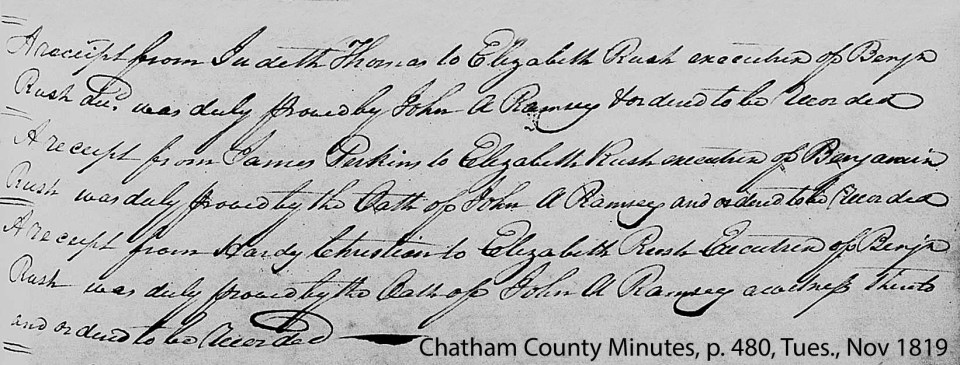 A receipt from Judeth Thomas to Elizabeth Rush executrix of Benjn
Rush decd was duly proved by John A Ramsey & ordered to be Recorded
A receipt from James Perkins to Elizabeth Rush executrix of Benjamin
Rush was duly proved by the Oath of John A Ramsey and ordered to be Recorded
A receipt from Hardy Christian to Elizabeth Rush Executrix of Benjn
Rush was duly proved by the Oath of John A Ramsey a witness thereto
and ordered to be Recorded
Chatham County Minutes, p. 480, Tues., Nov 1819